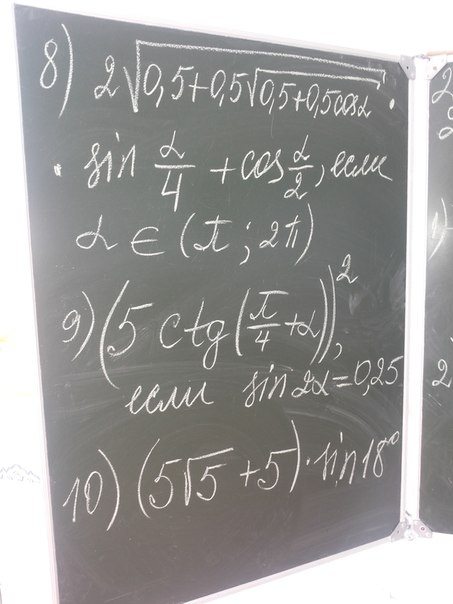 8) 2√(0,5+0,5√(0,5+0,5cosα)) ·
· sin α/4 + cos α/2, если
α ∈ (π; 2π)
9) (5 ctg(π/4+α))²,
если sin2α=0,25
10) (5√5+5)·sin18°